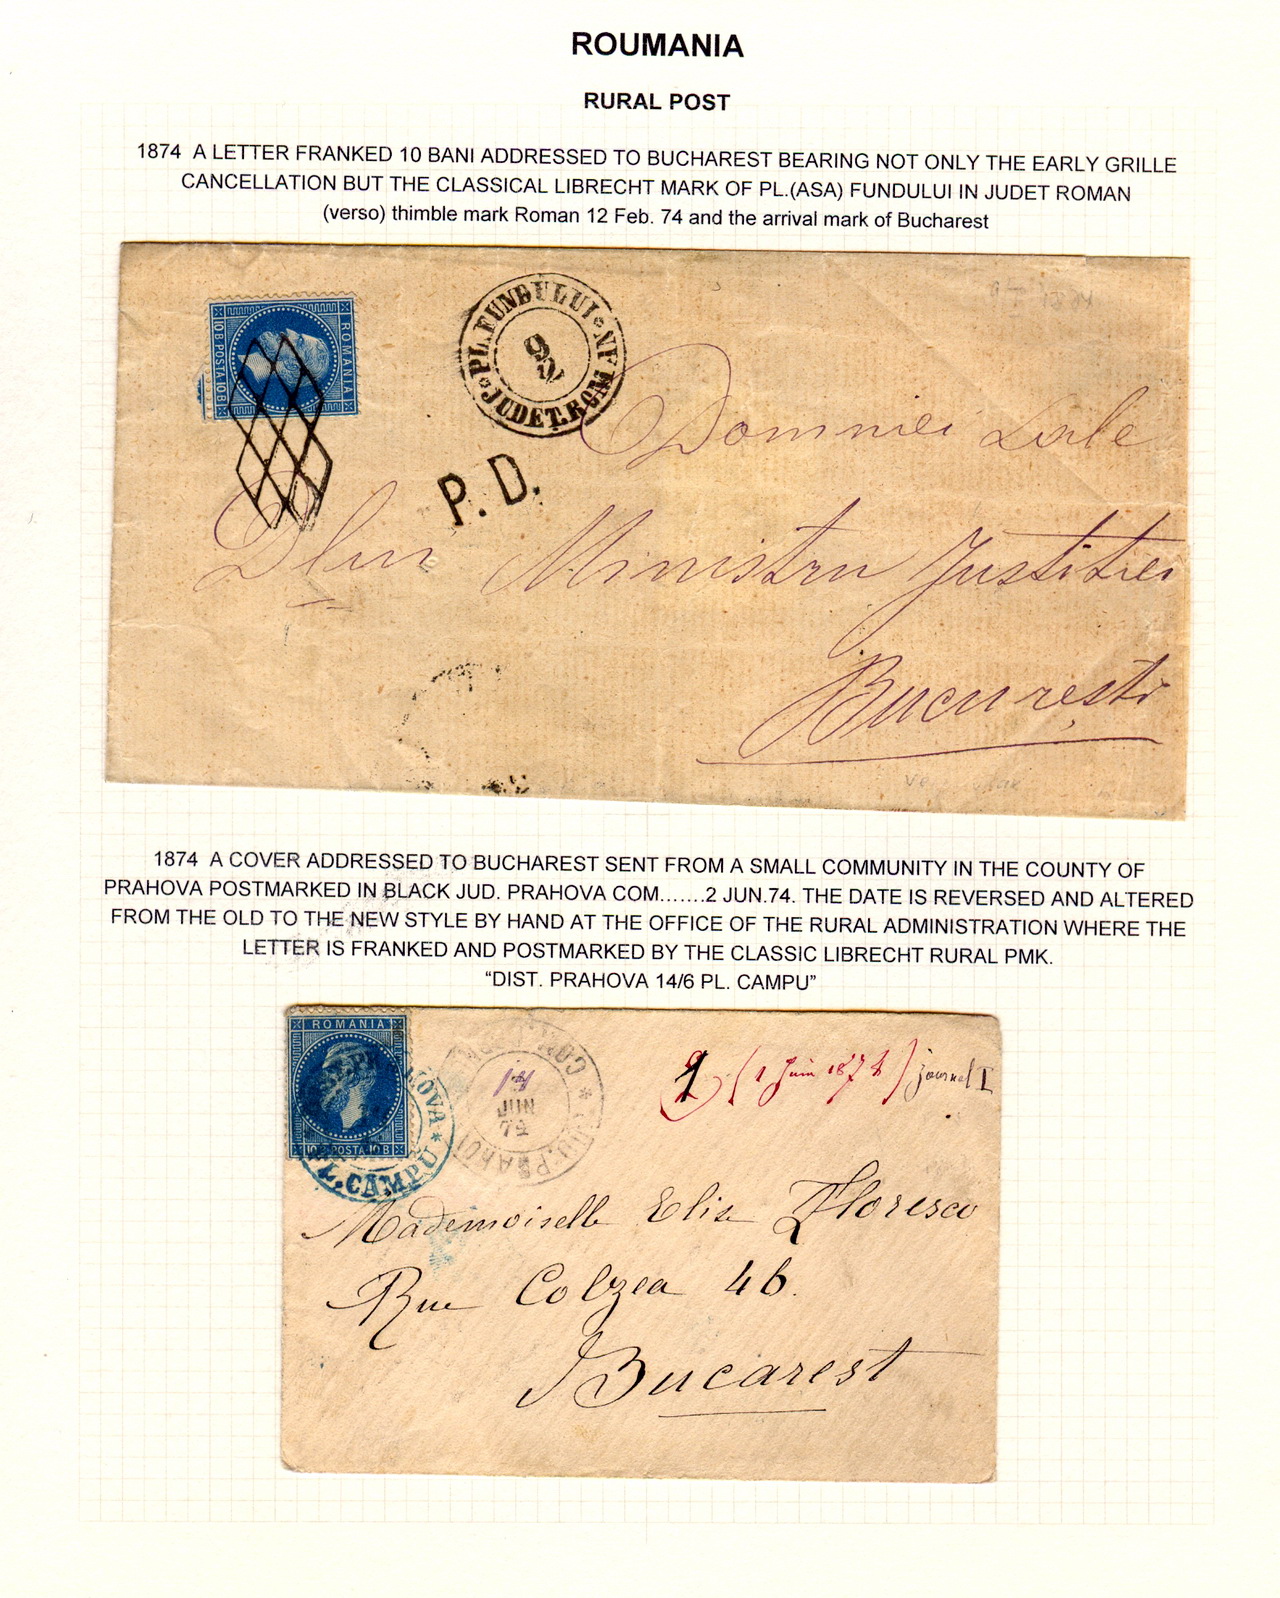 ROUMANIA
RURAL POST
1874 A LETTER FRANKED 10 BANI ADDRESSED TO BUCHAREST BEARING NOT ONLY THE EARLY GRILLE
CANCELLATION BUT THE CLASSICAL LIBRECHT MARK OF PL.(ASA) FUNDULUI IN JUDET ROMAN
(verso) thimble mark Roman 12 Feb. 74 and the arrival mark of Bucharest
ROMANIA
10 B. POSTA 10 B
PL.FUNDULUI * NF
9/2
JUDET.ROM
P. D.
Domniei Sale
Dlui Ministru Justitiei
Bucuresti
1874 A COVER ADDRESSED TO BUCHAREST SENT FROM A SMALL COMMUNITY IN THE COUNTY OF
PRAHOVA POSTMARKED IN BLACK JUD. PRAHOVA COM.......2 JUN.74. THE DATE IS REVERSED AND ALTERED
FROM THE OLD TO THE NEW STYLE BY HAND AT THE OFFICE OF THE RURAL ADMINISTRATION WHERE THE
LETTER IS FRANKED AND POSTMARKED BY THE CLASSIC LIBRECHT RURAL PMK.
“DIST. PRAHOVA 14/6 PL. CAMPU”
ROMANIA
10 B. POSTA 10 B
HOVA *
L.CAMPU
COM.
14
JUN
74
JU. PRAHO
1 (1 Juin 1874) journal I
Mademoiselle Elise Floresco
Rue Colzea 46.
Bucarest